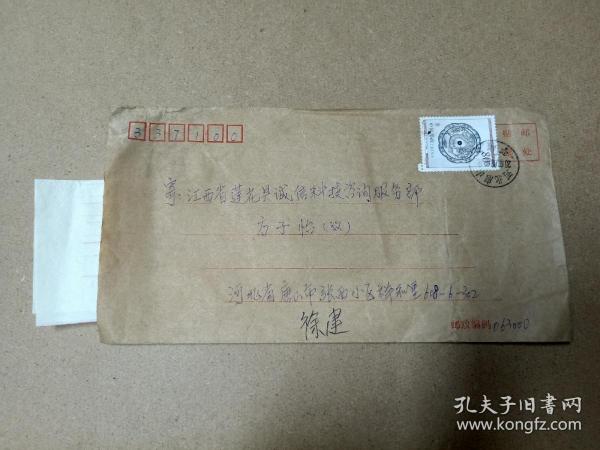 337100
寄:江西省莲花县诚信科技咨询服务部
方子怡(收)
河北省唐山市张各小区祥和里618-6-302
徐建
邮政编码 063000
贴邮
处
孔夫子旧书网
www.kongfz.com